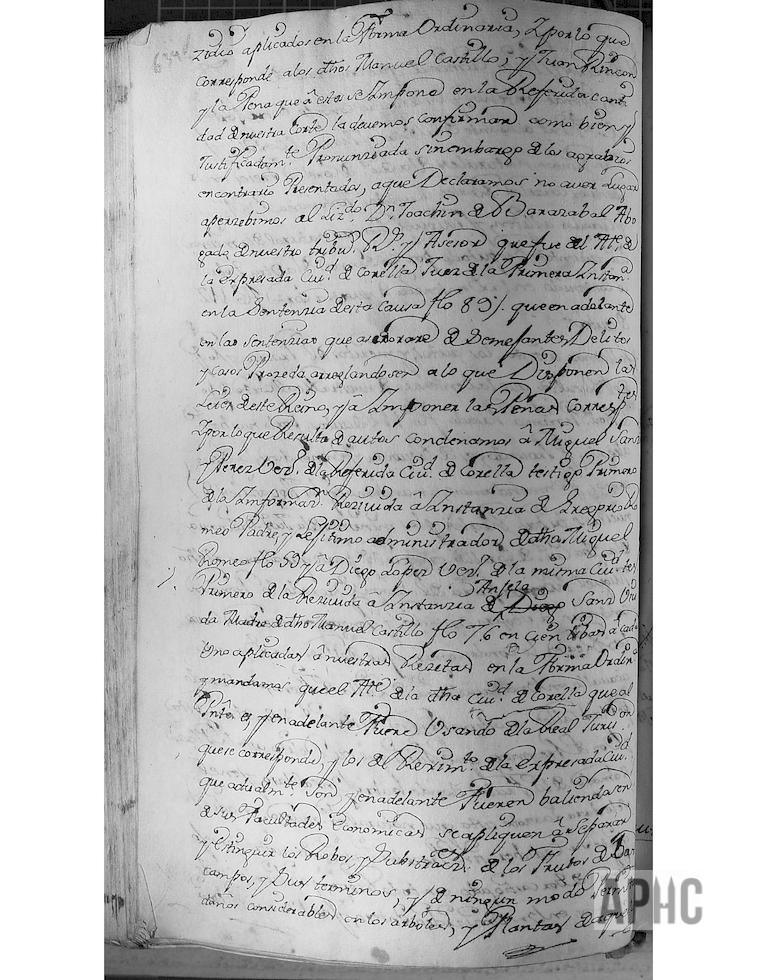 zidio aplicados en la forma Ordinaria, Y por lo que
corresponde a los dhos Manuel Castillo, y Juan Rincon
y la Pena que â estos se Impone en la Referida canti
dad de nuestra Corte la devemos confirmar como bien y
Justificadamte. Pronunziada sin embargo de los agrabios
en contrario Presentados, a que Declaramos no aver Lugar
aperzebimos al Lizdo. Dn. Joachin de Barazabal Abo
gado de nuestro tribul. Rl. y Asesor que fue del Alde. de
la expresada Ciud. de Corella Juez de la Primera Instana.
en la Sentenzia de esta causa flo 89 que en adelante
en las sentenzias que asesorare de Semejantes Delitos
y casos Prozeda arreglandose a lo que Disponen las
Leies de este Reino, y â Imponer las Penas Corresptes.
Y por lo que Resulta de autos condenamos â Miguel Sanz
y Perez Vezo. de la Referida Ciud. de Corella testigo Primero
de la Informaon. Rezivida â Instanzia de Gregorio Ro
meo Padre, y Lexitimo administrador de dho Miguel
Romeo flo 59 y â Diego Lopez Vezo. de la misma Ciud. tes
Primero de la Rezivida â Instanzia de Diego Sanz Viu
Angela
da Madre de dho Manuel Castillo flo 76 en cien libras â cada
Uno aplicadas â nuestras Rezetas en la Forma Ordina.
y mandamos que el Alde. de la dha Ciud. de Corella que al
Pnte. es, y en adelante Fuere Usando de la Real Juris.on
que se corresponde, y los del Rexim.to de la expresada Ciud.
que actualmte. son y en adelante Fueren baliendose
de sus Facultades economicas se apliquen â Separar
y estinguir los Robos, y Substracs. de los Frutos de
campos, y Sus terminos, y de ningun modo Permi
danos considerables en los arboles, y Plantas de aque
APHC